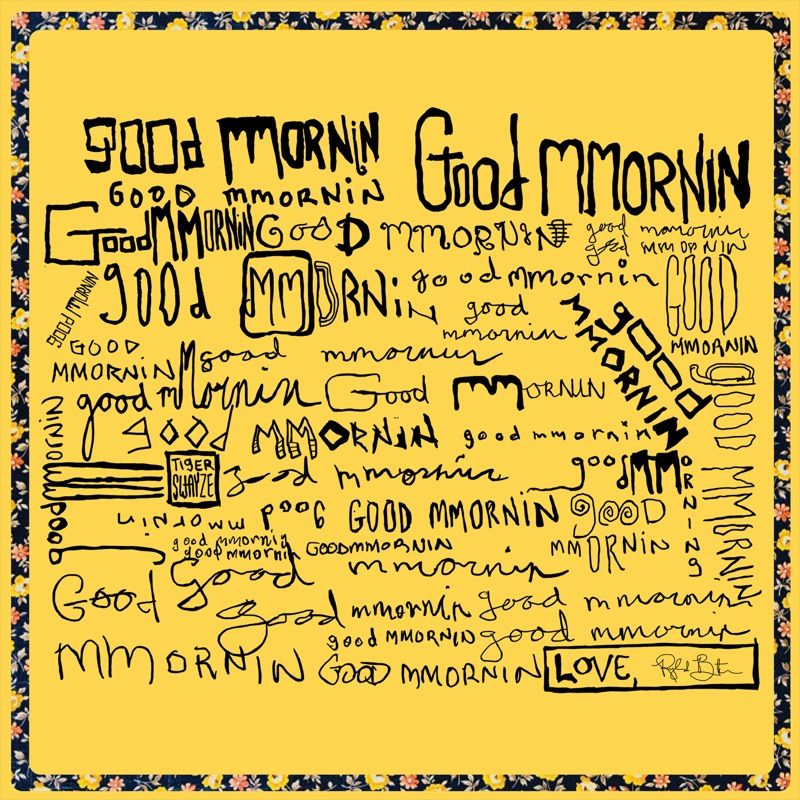 good mmornin
Good mmornin
GOOD mmORNiN
Good MMORNiN
GooD MMORNiN
good mmornin
good mmorNiN
good mmornin
good MMORNiN
good mmornin
GOOD
MMORNIN
good
mmornin
good
mmornin
GOOD
MMORNIN
good mmornin
good mmornin
Good mmornin
good MMORNiN
good mmornin
good mmornin
TIGER
SWAYZE
good mmornin
good mmornin
good mmornin
good mmornin
GOOD MMORNIN
GOOD
mmORNiN
good mmornin
good mmornin
good mmornin
GOODMMORNIN
Good mmornin
Good
MMORNIN
good mmornin
good mmornin
good MMORNIN
good mmornin
Good MMORNIN
LOVE,